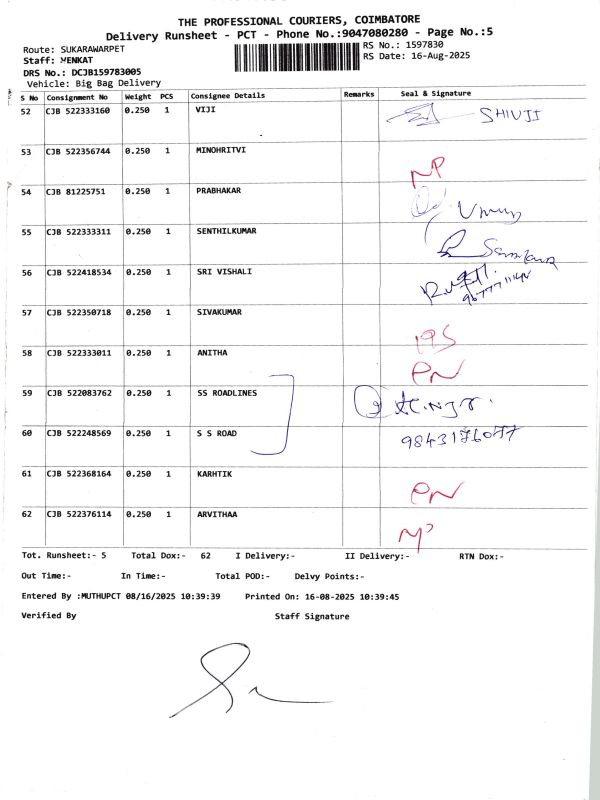 THE PROFESSIONAL COURIERS, COIMBATORE
Delivery Runsheet - PCT - Phone No.:9047080280 - Page No.:5
Route: SUKARAWARPET
RS No.: 1597830
Staff: MENKAT
RS Date: 16-Aug-2025
DRS No.: DCJB159783005
Vehicle: Big Bag Delivery
S No Consignment No Weight PCS Consignee Details Remarks Seal & Signature
52 CJB 522333160 0.250 1 VIJI SHIVJI
53 CJB 522356744 0.250 1 MINOHRITVI NP
54 CJB 81225751 0.250 1 PRABHAKAR
55 CJB 522333311 0.250 1 SENTHILKUMAR
56 CJB 522418534 0.250 1 SRI VISHALI
57 CJB 522350718 0.250 1 SIVAKUMAR
58 CJB 522333011 0.250 1 ANITHA PN
59 CJB 522083762 0.250 1 SS ROADLINES
60 CJB 522248569 0.250 1 S S ROAD 9843176077
61 CJB 522368164 0.250 1 KARHTIK PN
62 CJB 522376114 0.250 1 ARVITHAA NP
Tot. Runsheet:- 5 Total Dox:- 62 I Delivery:- II Delivery:- RTN Dox:-
Out Time:- In Time:- Total POD:- Delvy Points:-
Entered By :MUTHUPCT 08/16/2025 10:39:39 Printed On: 16-08-2025 10:39:45
Verified By Staff Signature